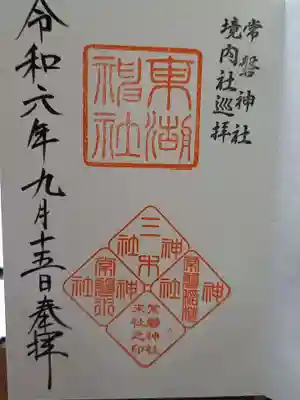 常磐神社
境内社巡拝
東湖
神社
三木神社
常磐稲荷神社
常磐神社
末社之印
令和六年九月十五日奉拝